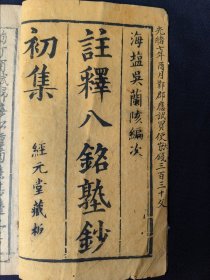 光緒七年月郡應試買使錢三百三十文
海鹽吳蘭陔編次
註釋八銘塾鈔
初集
經元堂藏板